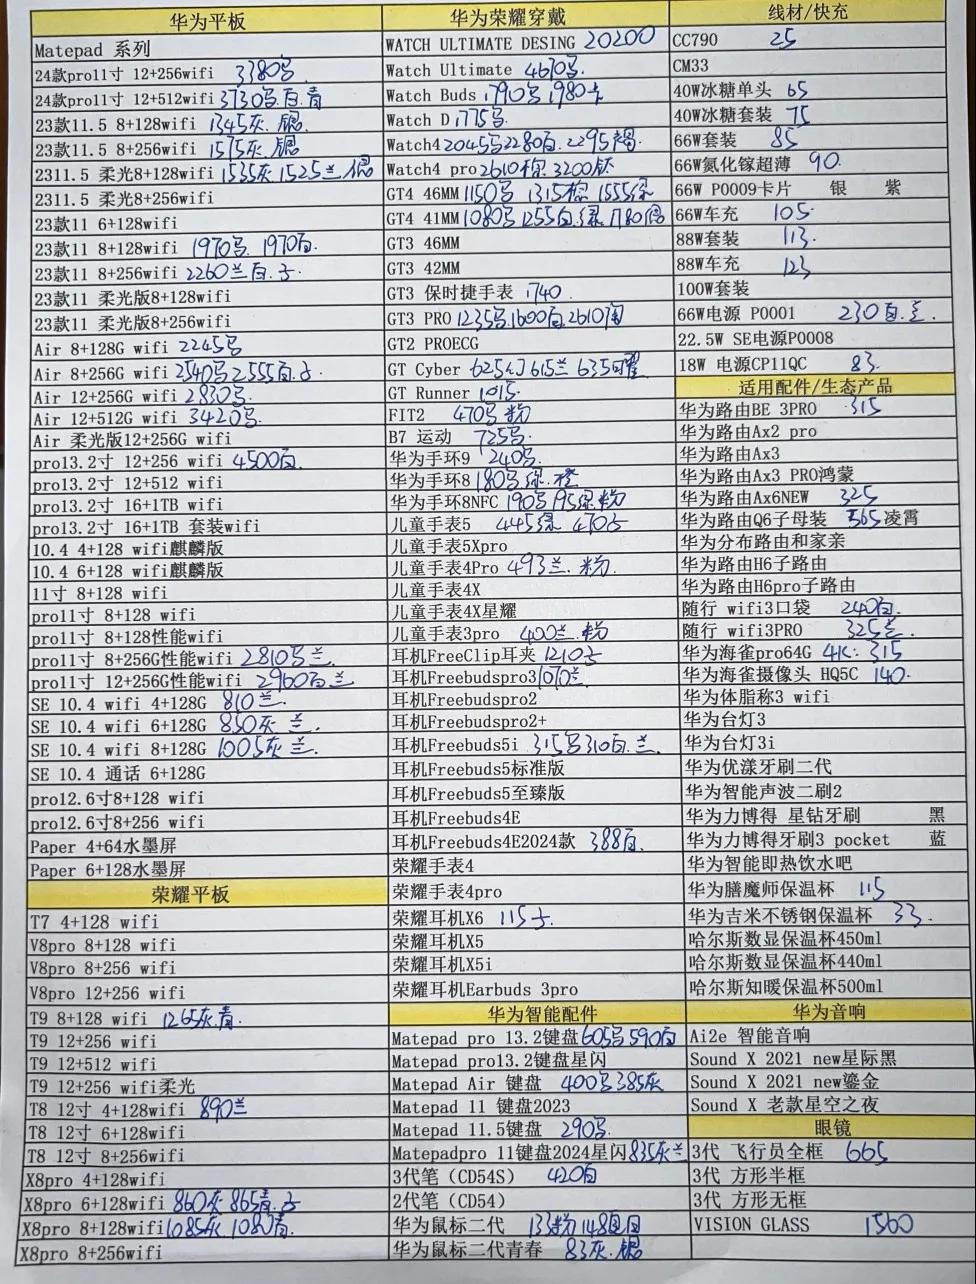 华为平板
Matepad 系列
24款pro11寸 12+256wifi 3380
24款pro11寸 12+512wifi 3730 白.青
23款11.5 8+128wifi 1345灰.
23款11.5 8+256wifi 1575灰.
2311.5 柔光8+128wifi 1535灰 1525兰
2311.5 柔光8+256wifi
23款11 6+128wifi
23款11 8+128wifi 1970 1970白.
23款11 8+256wifi 2260兰白.
23款11 柔光版8+128wifi
23款11 柔光版8+256wifi
Air 8+128G wifi 2245
Air 8+256G wifi 2540 2555白.
Air 12+256G wifi 2830
Air 12+512G wifi 3420
Air 柔光版12+256G wifi
pro13.2寸 12+256 wifi 4500白
pro13.2寸 12+512 wifi
pro13.2寸 16+1TB wifi
pro13.2寸 16+1TB 套装wifi
10.4 4+128 wifi麒麟版
10.4 6+128 wifi麒麟版
11寸 8+128 wifi
pro11寸 8+128 wifi
pro11寸 8+128性能wifi
pro11寸 8+256G性能wifi 2810 兰
pro11寸 12+256G性能wifi 2960白兰
SE 10.4 wifi 4+128G 810兰.
SE 10.4 wifi 6+128G 850灰 兰.
SE 10.4 wifi 8+128G 1005灰兰.
SE 10.4 通话 6+128G
pro12.6寸8+128 wifi
pro12.6寸8+256 wifi
Paper 4+64水墨屏
Paper 6+128水墨屏
荣耀平板
T7 4+128 wifi
V8pro 8+128 wifi
V8pro 8+256 wifi
V8pro 12+256 wifi
T9 8+128 wifi 1265灰.青.
T9 12+256 wifi
T9 12+512 wifi
T9 12+256 wifi柔光
T8 12寸 4+128wifi 890兰
T8 12寸 6+128wifi
T8 12寸 8+256wifi
X8pro 4+128wifi
X8pro 6+128wifi 860灰 865青.
X8pro 8+128wifi 1085灰 1080青.
X8pro 8+256wifi
华为荣耀穿戴
WATCH ULTIMATE DESING 20200
Watch Ultimate 4670
Watch Buds 1790 1980
Watch D 1775
Watch4 2045 2280 2295
Watch4 pro 2610棕 3200钛
GT4 46MM 1150 1315棕 1555绿
GT4 41MM 1080 1255白.绿 1780
GT3 46MM
GT3 42MM
GT3 保时捷手表 1740
GT3 PRO 1235 1600白 2610陶
GT2 PROECG
GT Cyber 625幻 615兰 635曜
GT Runner 1015.
FIT2 470 粉
B7 运动 725
华为手环9 240
华为手环8 180 绿.橙
华为手环8NFC 190 195绿.粉
儿童手表5 445绿 470
儿童手表5Xpro
儿童手表4Pro 493兰.粉.
儿童手表4X
儿童手表4X星耀
儿童手表3pro 400兰.粉
耳机FreeClip耳夹 1210
耳机Freebudspro3 1070兰
耳机Freebudspro2
耳机Freebudspro2+
耳机Freebuds5i 315 310白.兰.
耳机Freebuds5标准版
耳机Freebuds5至臻版
耳机Freebuds4E
耳机Freebuds4E2024款 388白.
荣耀手表4
荣耀手表4pro
荣耀耳机X6 115
荣耀耳机X5
荣耀耳机X5i
荣耀耳机Earbuds 3pro
华为智能配件
Matepad pro 13.2键盘 605 590白
Matepad pro13.2键盘星闪
Matepad Air 键盘 400 385灰
Matepad 11 键盘2023
Matepad 11.5键盘 290
Matepadpro 11键盘2024星闪 835灰兰
3代笔（CD54S） 420白
2代笔（CD54）
华为鼠标二代 133粉 148
华为鼠标二代青春 83灰.银
线材/快充
CC790 25
CM33
40W冰糖单头 65
40W冰糖套装 75
66W套装 85
66W氮化镓超薄 90.
66W P0009卡片 银 紫
66W车充 105.
88W套装 113.
88W车充 123
100W套装
66W电源 P0001 230白.兰.
22.5W SE电源P0008
18W 电源CP11QC 83.
适用配件/生态产品
华为路由BE 3PRO 315
华为路由Ax2 pro
华为路由Ax3
华为路由Ax3 PRO鸿蒙
华为路由Ax6NEW 325
华为路由Q6子母装 565凌霄
华为分布路由和家亲
华为路由H6子路由
华为路由H6pro子路由
随行 wifi3口袋 240白.
随行 wifi3PRO 325兰.
华为海雀pro64G 4K: 315
华为海雀摄像头 HQ5C 140.
华为体脂称3 wifi
华为台灯3
华为台灯3i
华为优漾牙刷二代
华为智能声波二刷2
华为力博得 星钻牙刷 黑
华为力博得牙刷3 pocket 蓝
华为智能即热饮水吧
华为膳魔师保温杯 115
华为吉米不锈钢保温杯 33.
哈尔斯数显保温杯450ml
哈尔斯数显保温杯440ml
哈尔斯知暖保温杯500ml
华为音响
Ai2e 智能音响
Sound X 2021 new星际黑
Sound X 2021 new鎏金
Sound X 老款星空之夜
眼镜
3代 飞行员全框 665
3代 方形半框
3代 方形无框
VISION GLASS 1560